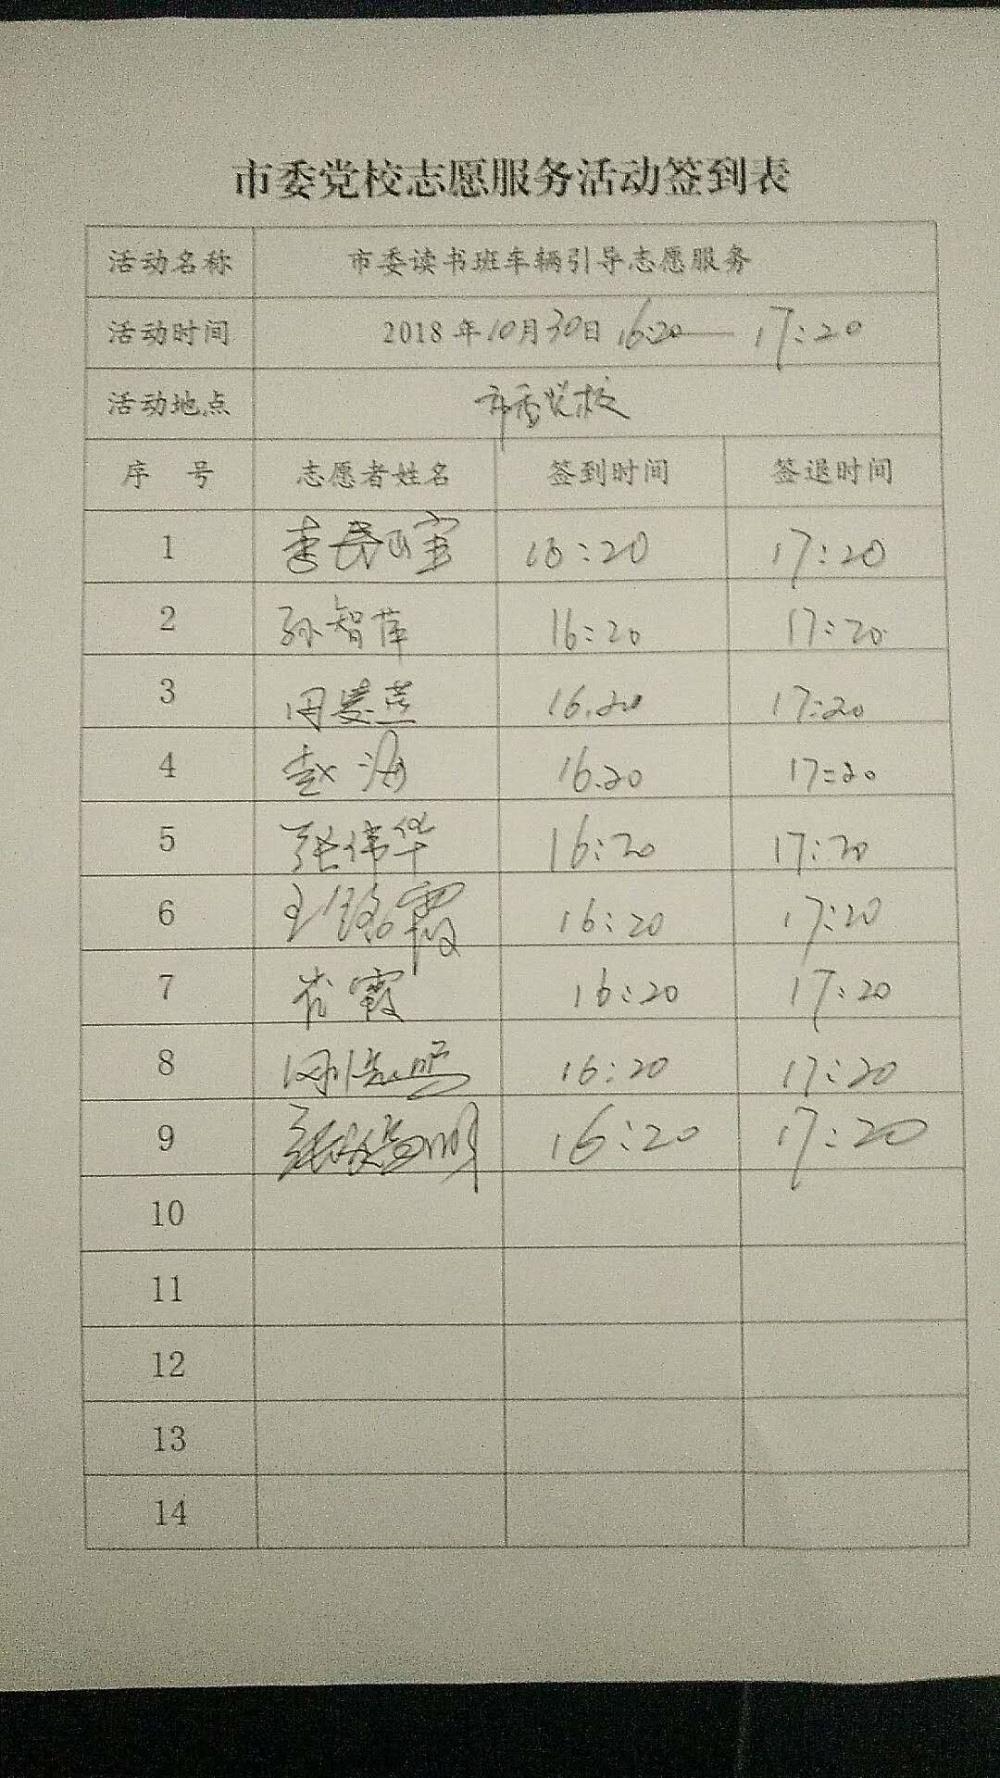 市委党校志愿服务活动签到表
活动名称 市委读书班车辆引导志愿服务
活动时间 2018年10月30日 16:20—17:20
活动地点 市委党校
序 号 志愿者姓名 签到时间 签退时间
1 16:20 17:20
2 孙智萍 16:20 17:20
3 16.20 17:20
4 赵海 16.20 17:20
5 张伟华 16:20 17:20
6 16:20 17:20
7 崔霞 16:20 17:20
8 16:20 17:20
9 16:20 17:20
10
11
12
13
14